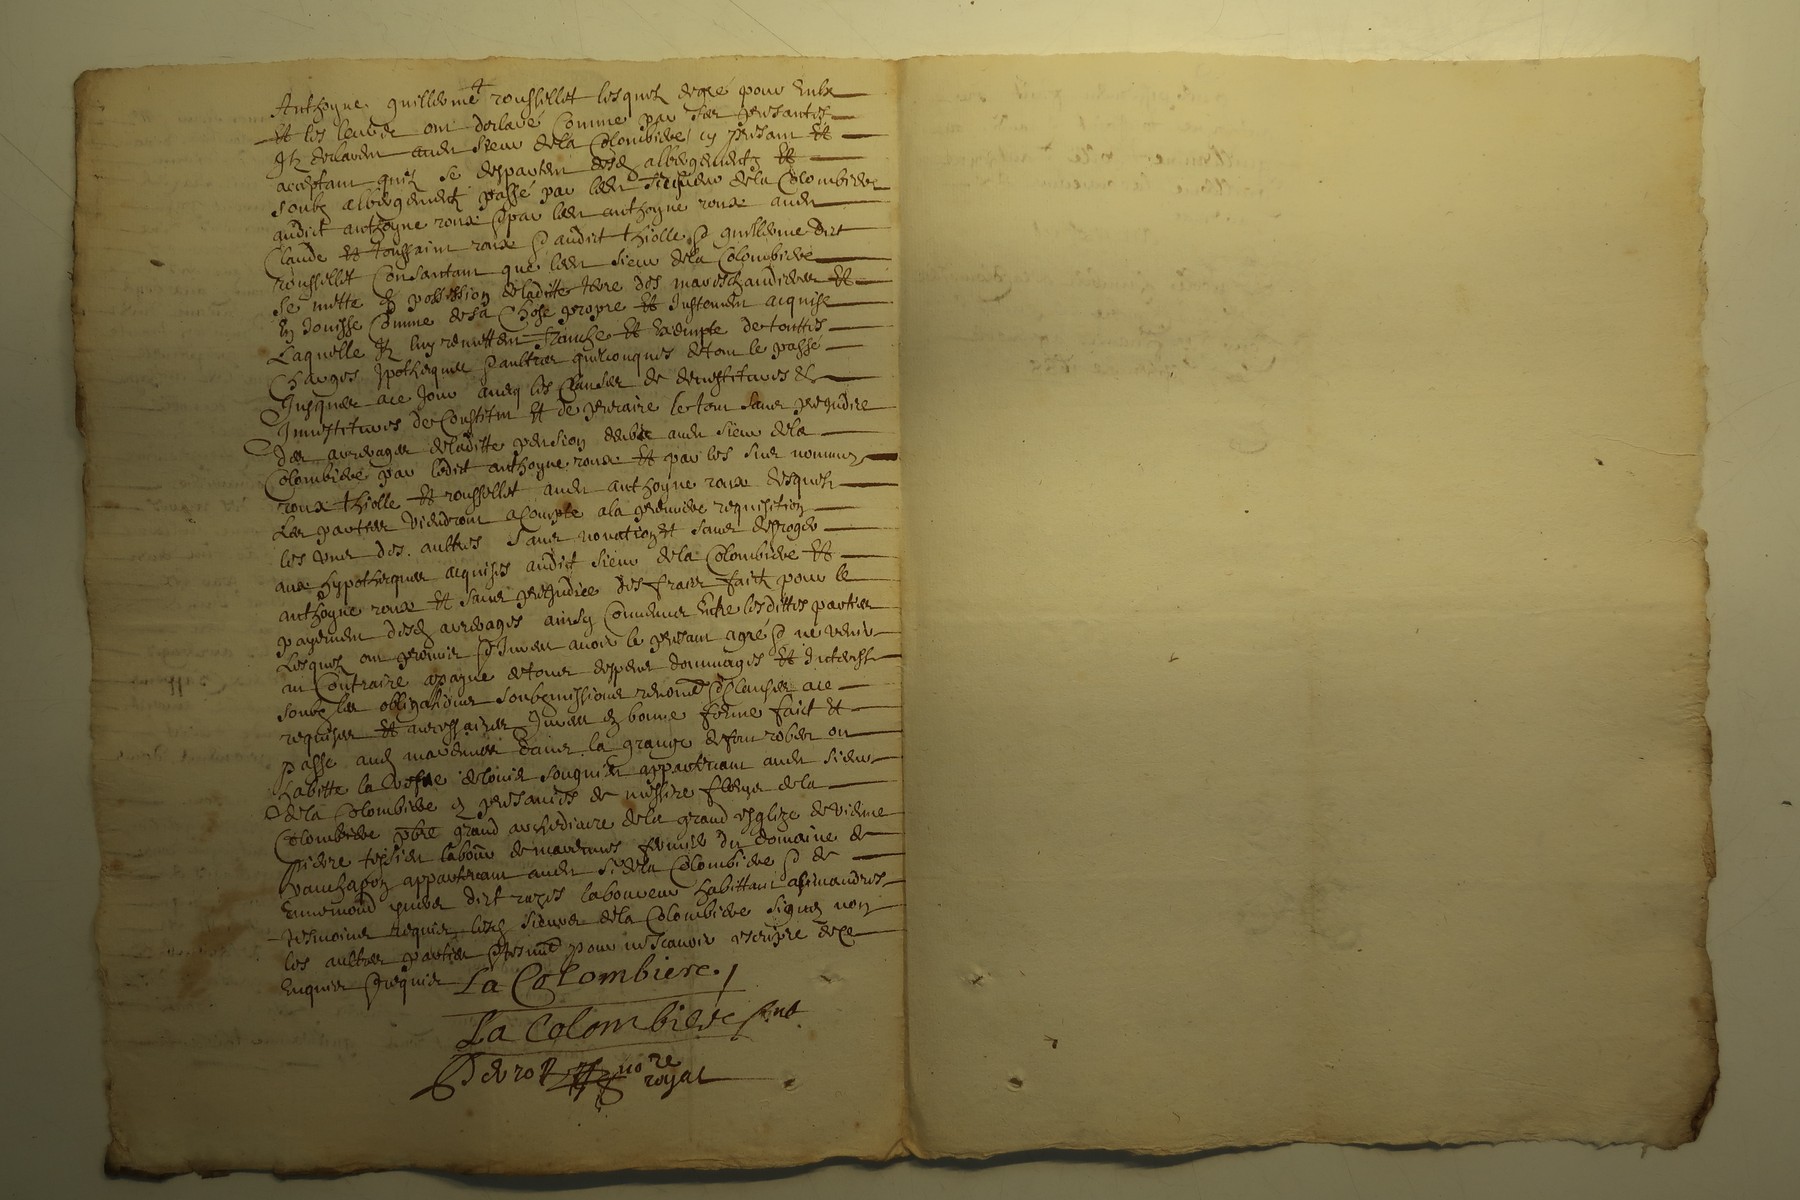 Anthoyne guillerme roussillet lesquelz degre pour Eulx
Et les leurs ont declaré Comme par ses presantes
Ilz declarent audit sieur dela Colombiere icy presant Et
acceptant quilz se despartent desdz albergementz Et
soubz albergementz passé par ledit seigneur dela Colombiere
audict anthoyne roux & par ledit anthoyne roux audit
Claude Et toussaint roux & audict thiolle & guillerme dict
roussillet Consantant que ledit sieur dela Colombiere
se mette en possession deladitte terre des mareschaudieres Et
En Jouisse Comme desa Chose propre Et Justement acquise
Laquelle Ilz luy remettent franche Et Exempte de touttes
Charges Ipotheques & aultres quelconques detout le passé
Jusques ace Jour aveq les Clauses de devestitures Et
Investitures de Constitut Et de precaire letout sans prejudice
des arrerages deladitte pension deube audit sieur dela
Colombiere par ledict anthoyne roux Et par les sus nommez
roux thiolle Et roussillet audit anthoyne roux desquelz
Les parties viendront a Compte ala premiere requisition
les unes des aultres sans novation Et sans desroger
aux hypotheques acquises audict sieur dela Colombiere Et
anthoyne roux Et sans prejudice des fraix faictz pour le
payement desdz arrerages ainsy Convenu Entre lesdittes parties
Lesquelz ont promis & Juré avoir le presant agré & ne venir
au Contraire apayne detous despens dommages Et Interestz
soubz les obligations soubzmissions & Clauses ace
requises Et necessaires Jurees En bonne forme faict Et
passé audz dans la grange defont robert ou
habitte la vefve delouis appartenant audit sieur
dela Colombiere En presances de messire dela
Colombiere pbre grand archidiacre dela grand esglize de vienne
pierre labour fermier du domaine de
appartenant audit sr dela Colombiere & de
Ennemond dict laboureur habittant
tesmoins requis lesdz sieurs dela Colombiere signez non
les aultres parties & tesmoingz pour nescavoir escripre dece
Enquis & requis La Colombiere
La Colombiere pnt
nore
royal